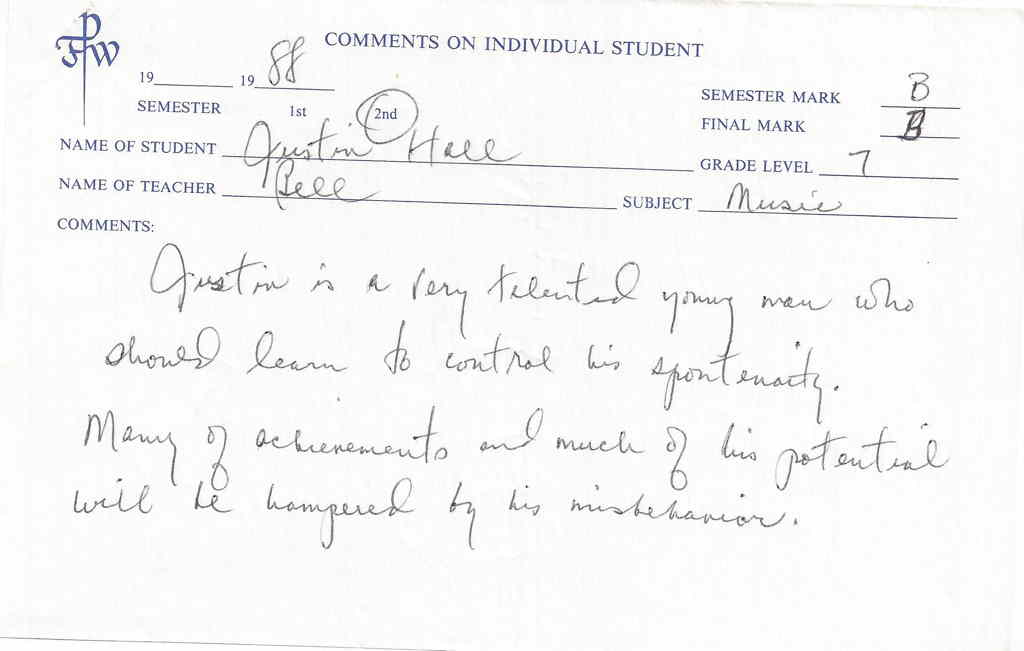 FPW
COMMENTS ON INDIVIDUAL STUDENT
19 19 88
SEMESTER 1st 2nd
SEMESTER MARK B
FINAL MARK B
NAME OF STUDENT Justin Hall
GRADE LEVEL 7
NAME OF TEACHER Bell
SUBJECT Music
COMMENTS:
Justin is a very telented young man who
should learn to control his spontenaity.
Many of achievements and much of his potential
will be hampered by his misbehavior.